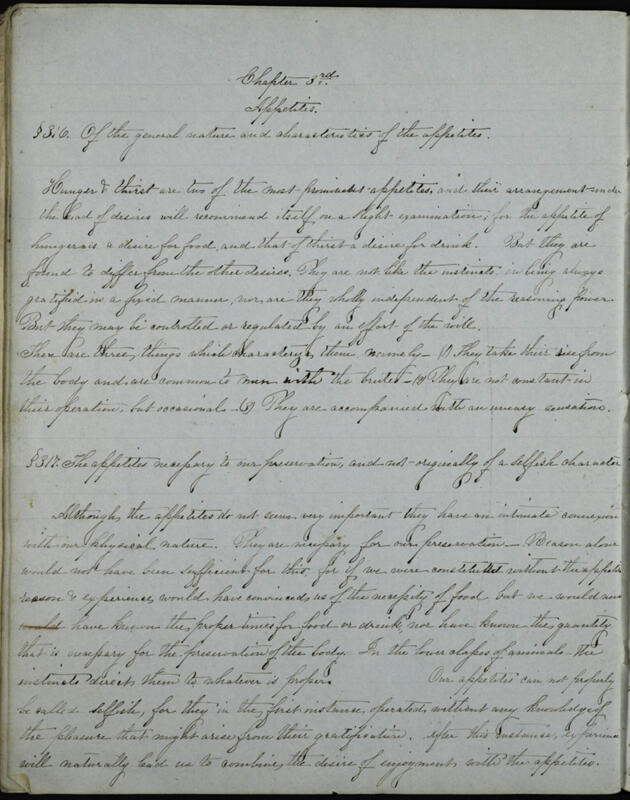 Chapter 3rd.
Appetites.
§ 316. Of the general nature and characteristics of the appetites.
Hunger & thirst are two of the most prominent appetites, and their arrangement under
the head of desires will recommend itself, on a slight examination; for the appetite of
hunger is a desire for food, and that of thirst a desire for drink. But they are
found to differ from the other desires. They are not like the instincts in being always
gratified in a fixed manner, nor are they wholly independent of the reasoning power.
But they may be controlled or regulated by an effort of the will.
There are three things which characterize them, namely— (1) They take their rise from
the body and are common to men with the brutes— (2) They are not constant in
their operation, but occasional— (3) They are accompanied with an uneasy sensation.
§ 317. The appetites necessary to our preservation, and not originally of a selfish character
Although the appetites do not seem very important they have an intimate connexion
with our physical nature. They are necessary for our preservation— Reason alone
would not have been sufficient for this, for if we were constituted without the appetite
reason & experience would have convinced us of the necessity of food but we would
have known the proper times for food or drink, nor have known the quantity
that is necessary for the preservation of the body. In the lower classes of animals the
instincts direct them to whatever is proper. Our appetites can not properly
be called selfish, for they in the first instance, operated without any knowledge of
the pleasure that might arise from their gratification. After this instance, experience
will naturally lead us to combine, the desire of enjoyment with the appetites.